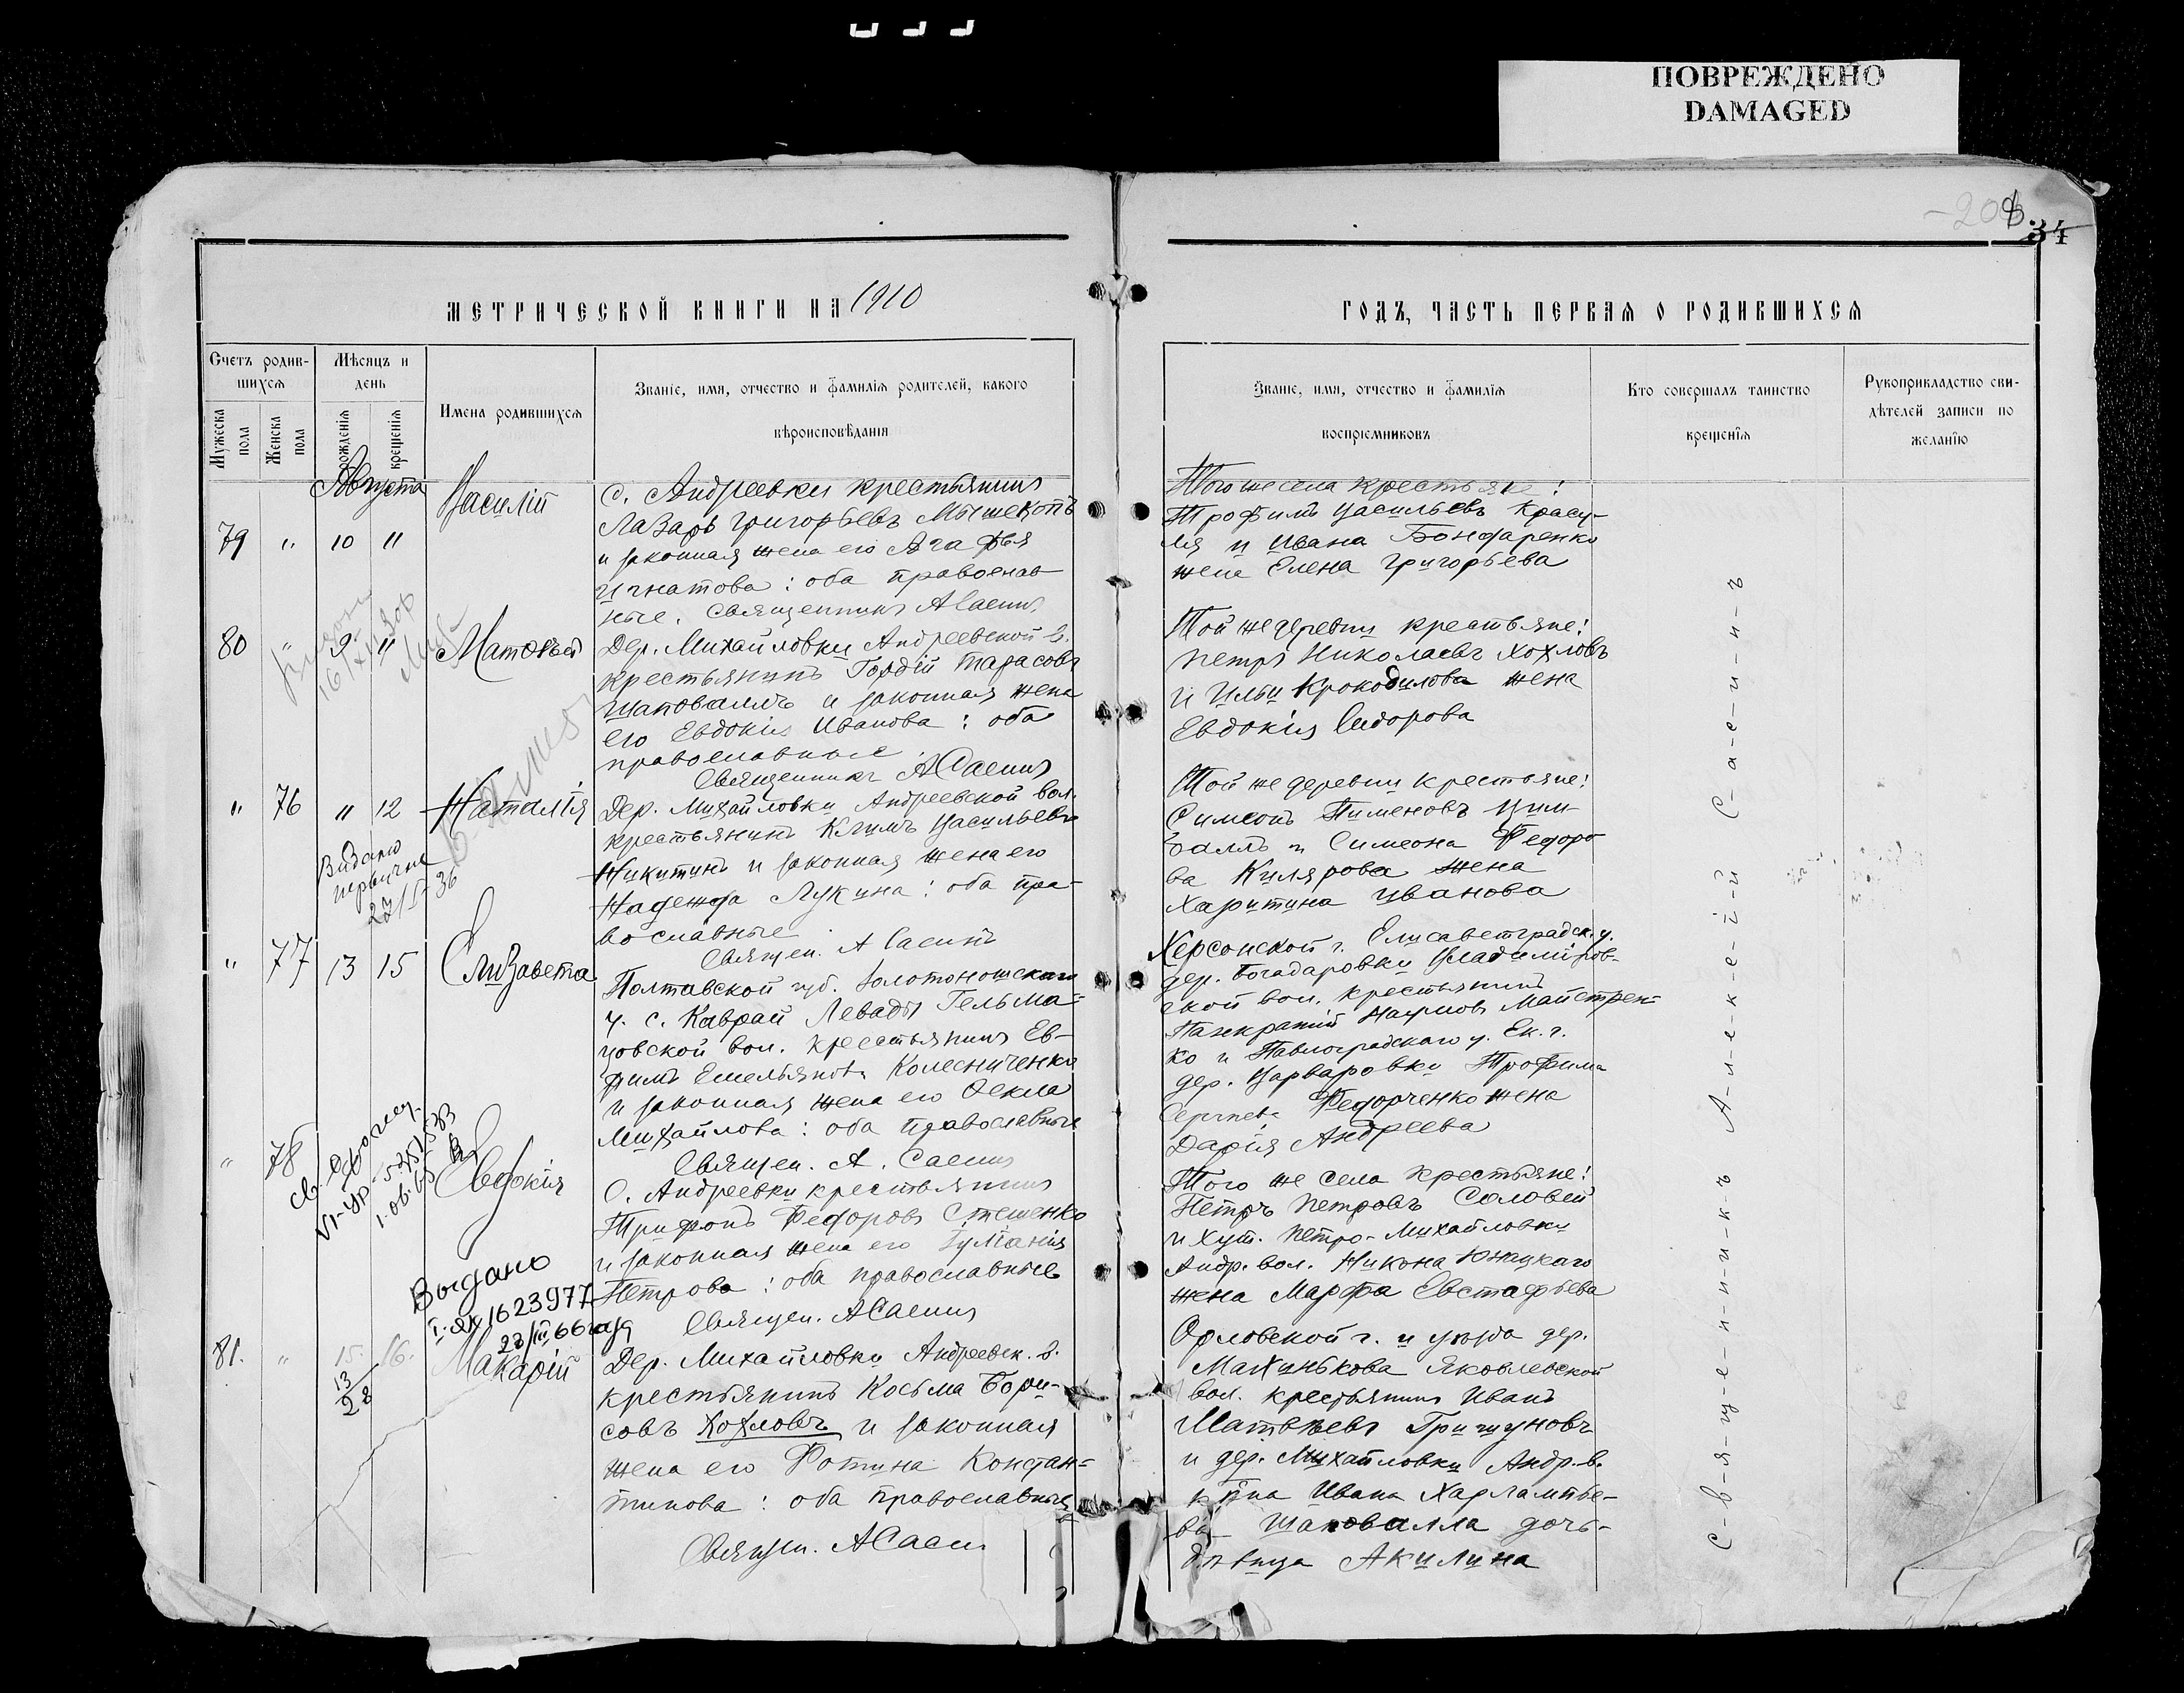 ПОВРЕЖДЕНО
DAMAGED
34
МЕТРИЧЕСКОЙ КНИГИ НА 1910
ГОДЪ, ЧАСТЬ ПЕРВАЯ О РОДИВШИХСЯ
Счетъ родив-
шихся
Мужеска пола
Женска пола
Мѣсяцъ и
день
рожденія
крещенія
Имена родившихся
Званіе, имя, отчество и фамилія родителей, какого
вѣроисповѣданія
Званіе, имя, отчество и фамилія
воспріемниковъ
Кто совершалъ таинство
крещенія
Рукоприкладство сви-
дѣтелей записи по
желанію
Августа
79 " 10 11
Василій
с. Андреевки крестьянинъ
Лазарь Григорьевъ
и законная жена его Агафья
Игнатова: оба православ
ные. Священникъ А Саенин
Того же села крестьяне:
Трофимъ Васильевъ Красу-
ля и Ивана Бондаренко
жена Елена Григорьева
80 " 9 11
Матвѣй
Дер. Михайловки Андреевской в.
крестьянинъ Гордій Тарасовъ
Шаповаллъ и законная жена
его Евдокія Иванова: оба
православные
Священникъ А Саенин
Той же деревни крестьяне:
Петръ Николаевъ Хохловъ
и Ильи Крокодилова жена
Евдокія Сидорова
" 76 11 12
Наталія
Дер. Михайловки Андреевской вол.
крестьянинъ Климъ Васильевъ
Никитинъ и законная жена его
Надежда Лукина: оба пра-
вославные
Священ. А Саенин
Той же деревни крестьяне:
Симеонъ Пименовъ Цим-
балъ и Симеона Федоро
ва Килярова жена
Харитина Иванова
Видано
27/V-36
" 77 13 15
Елизавета
Полтавской губ. Золотоношскаго
у. с. Каврай Левады Гельмя-
зовской вол. крестьянинъ Ев-
фимъ Емельяновъ Колесниченко
и законная жена его Ѳекла
Михайлова: оба православные
Священ. А. Саенин
Херсонской г. Елисаветградск. у.
дер. Богадаровки Владиміров-
ской вол. крестьянинъ
Панкратій Наумовъ Майстрен-
ко и Павлоградскаго у. Ек. г.
дер. Варваровки Трофима
Сергѣева Федорченко жена
Дарія Андреева
" 78
Евдокія
С. Андреевки крестьянинъ
Трифонъ Федоровъ Стешенко
и законная жена его Іуліанія
Петрова: оба православные
Священ. А Саенин
Того же села крестьяне:
Петръ Петровъ Соловей
и хут. Петро-Михайловки
Андр. вол. Никона
жена Марфа Евстафьева
Выдано
I-ЯК 1623977
23/III 66 года
81. " 15. 16.
13
28
Макарій
Дер. Михайловки Андреевск. в.
крестьянинъ Косьма Бори-
совъ Хохловъ и законная
жена его Фотина Констан-
тинова: оба православные
Священ. А Саен
Орловской г. и уѣзда дер.
Махинькова Яковлевской
вол. крестьянинъ Иванъ
Матвѣевъ Гришуновъ
и дер. Михайловки Андр. в.
кр-на Ивана Харлампіе-
ва Шаповалла дочь-
дѣвица Акилина
С-в-я-щ-е-н-н-и-к-ъ А-л-е-к-с-і-й С-а-е-н-и-н-ъ